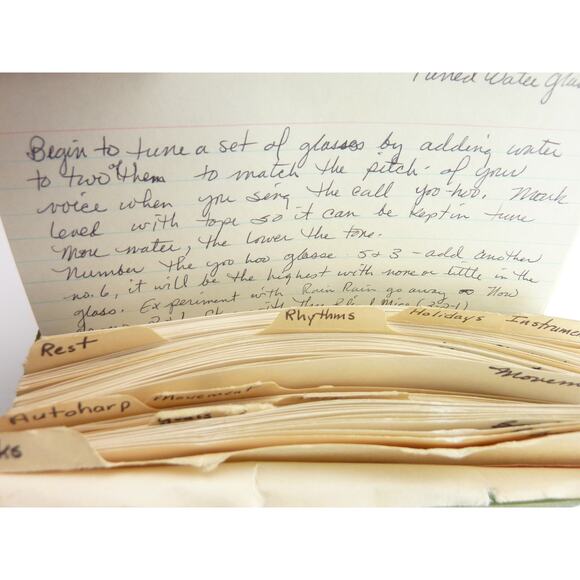 Tuned Water Glas
Begin to tune a set of glasses by adding water
to two of them to match the pitch of your
voice when you sing the call yoo-hoo. Mark
level with tape so it can be kept in tune
More water, the lower the tone.
Number the yoo hoo glasse 5 & 3 - add another
no. 6, it will be the highest with none or little in the
glass. Experiment with Rain Rain go away Now
Rest
Rhythms
Holidays
Instrume
Movem
Autoharp
Movement
ks